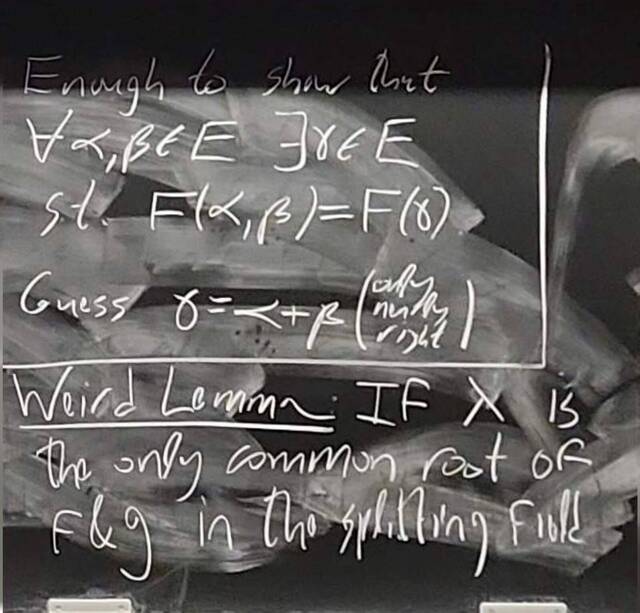 Enough to show that
∀α,β∈E ∃γ∈E
st. F(α,β)=F(γ)
Guess γ=α+β (only nearly right)
Weird Lemma: IF λ is
the only common root of
f&g in the splitting field